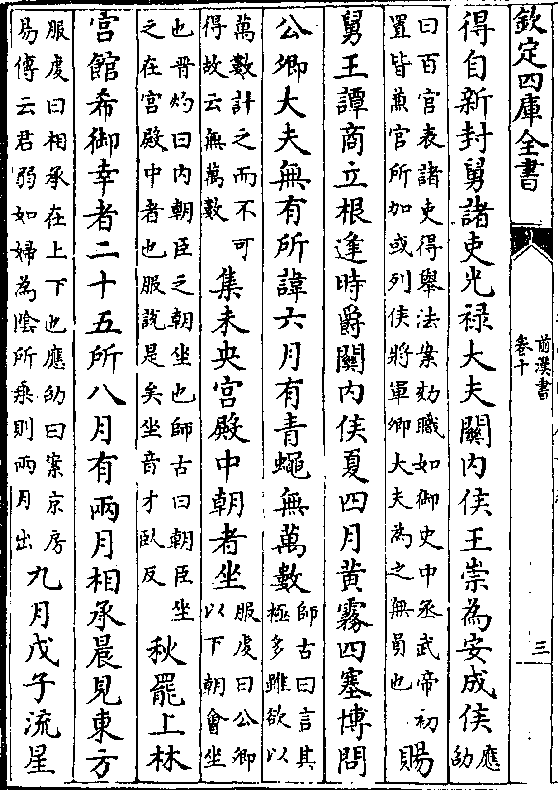 欽定四庫全書
前漢書
卷十
三
得自新封舅諸吏光禄大夫關内侯王崇為安成侯
應
劭
曰百官表諸吏得舉法案劾職如御史中丞武帝初
置皆兼官所加或列侯將軍卿大夫為之無員也
賜
舅王譚商立根逢時爵關内侯夏四月黄霧四塞博問
公卿大夫無有所諱六月有青蠅無萬數
師古曰言其
極多雖欲以
萬數計之而不可
得故云無萬數
集未央宫殿中朝者坐
服虔曰公卿
以下朝會坐
也晉灼曰内朝臣之朝坐也師古曰朝臣坐
之在宫殿中者也服說是矣坐音才臥反
秋罷上林
宫館希御幸者二十五所八月有兩月相承晨見東方
服虔曰相承在上下也應劭曰案京房
易傳云君弱如婦為陰所乘則兩月出
九月戊子流星